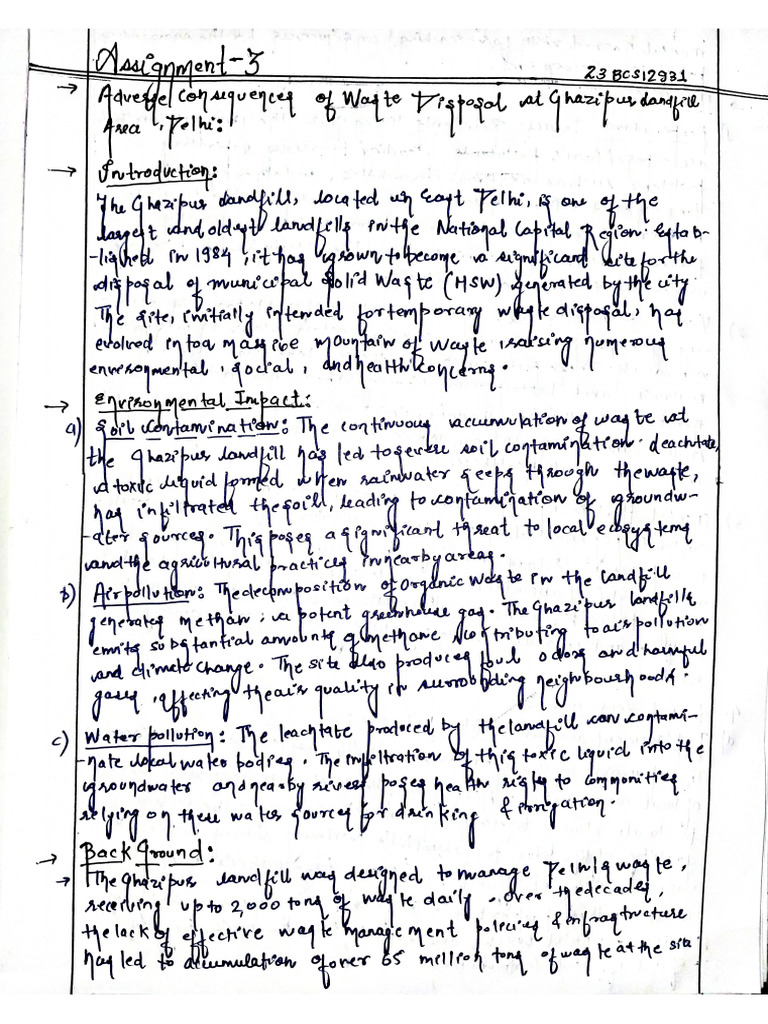 Assignment-3
23BCS12931
→ Adverse Consequences of Waste Disposal at Ghazipur Landfill
Area, Delhi:
→ Introduction:
The Ghazipur Landfill, located in East Delhi, is one of the
largest and oldest landfills in the National Capital Region. Estab-
-lished in 1984, it has grown to become a significant site for the
disposal of municipal Solid Waste (MSW) generated by the city
The site, initially intended for temporary waste disposal, has
evolved into a massive mountain of waste raising numerous
environmental, social, and health concerns.
→ Environmental Impact:
a) Soil Contamination: The continuous accumulation of waste at
the Ghazipur landfill has led to severe soil contamination. Leachtate,
a toxic liquid formed when rainwater seeps through the waste,
has infiltrated the soil, leading to contamination of groundw-
-ater sources. This poses a significant threat to local ecosystems
and the agricultural practices in nearby areas.
b) Air pollution: The decomposition of organic waste in the landfill
generates methan, a potent greenhouse gas. The Ghazipur landfills
emits substantial amounts of methane contributing to air pollution
and climate change. The site also produces foul odors and harmful
gases, effecting the air quality in surrounding neighbourhoods.
c) Water pollution: The leachtate produced by the landfill can contami-
-nate local water bodies. The infiltration of this toxic liquid into the
groundwater and nearby rivers poses health risks to commonities
relying on these water sources for drinking & irrigation.
→ Back Ground:
→ The Ghazipur landfill was designed to manage Delhi's waste,
receiving up to 2,000 tons of waste daily. over the decades,
the lack of effective waste management policies & infrastructure
has led to accumulation of over 65 million tons of waste at the site